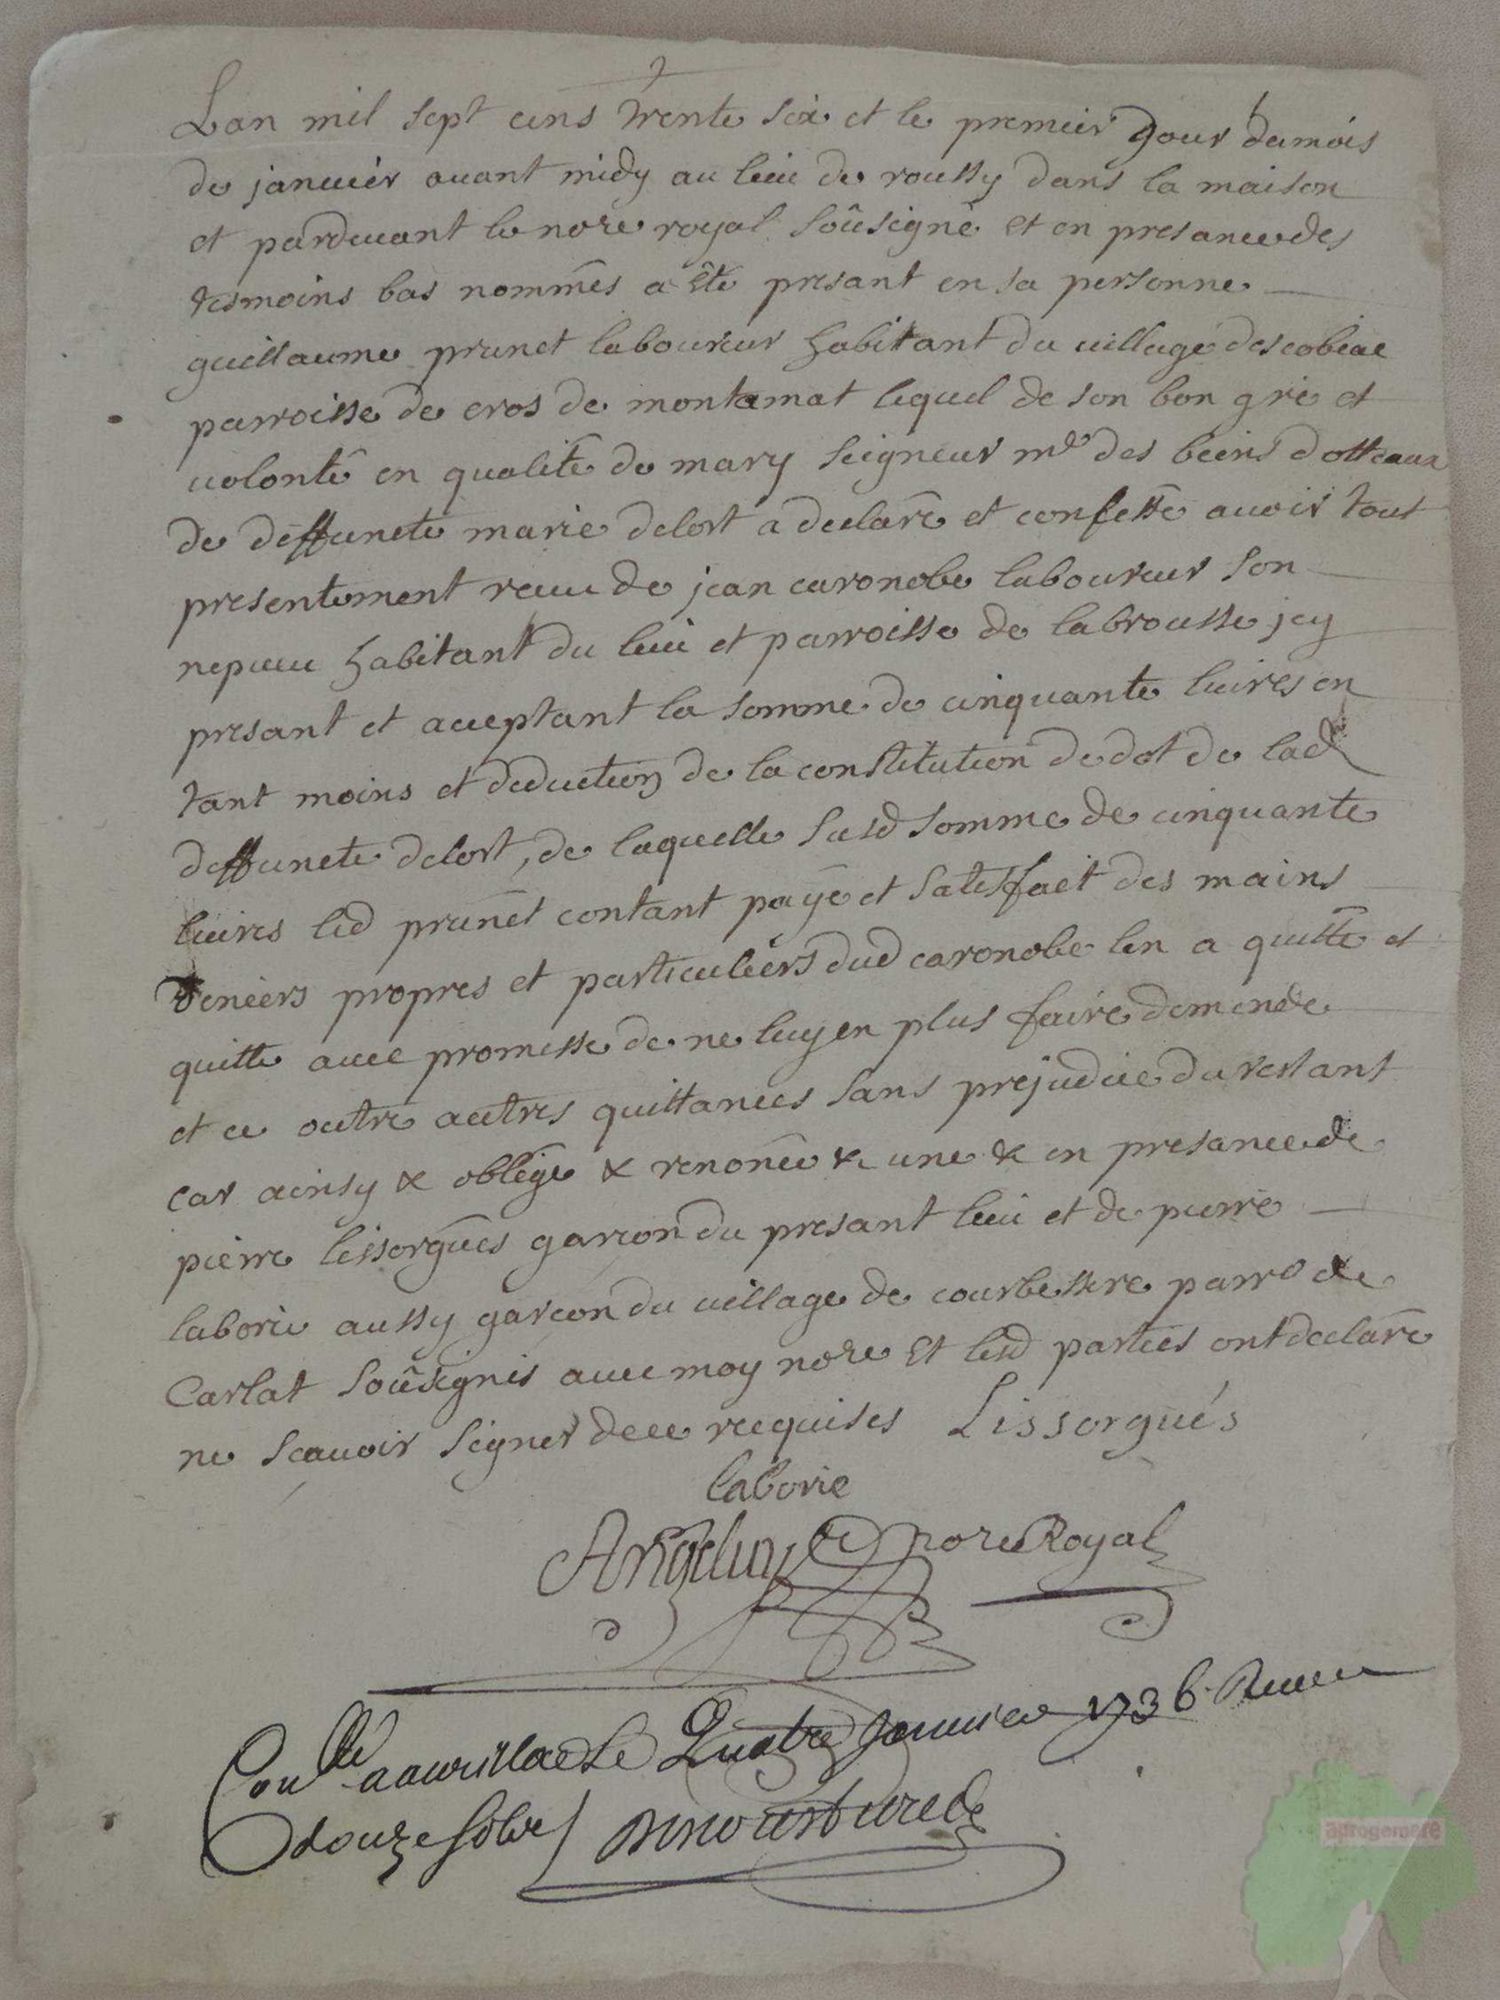 Lan mil sept cens trente six et le premier jour du mois
de januier auant midy au lieu de roussy dans la maison
et parduuant le nore royal soûsigné et en presance des
tesmoins bas nommés a êté presant en sa personne
guillaume prunet laboureur habitant du uillage descobiac
parroisse de cros de montamat lequel de son bon gré et
uolonté en qualité de mary seigneur me des biens dotteaux
de deffuncte marie delort a declaré et confessé auoir tout
presentement receu de jean caronobe laboureur son
nepueu habitant du lieu et parroisse de labrousse jcy
presant et acceptant la somme de cinquante liures en
tant moins et deduction de la constitution de dot de lad
deffuncte delort, de laquelle susd somme de cinquante
liures led prunet contant payé et satisfait des mains
deniers propres et particuliers dud caronobe len a quitté et
quitte auec promesse de ne luy en plus faire demande
et ce outre autres quittances sans prejudice du restant
car ainsy & obligé & renoncé & une & en presance de
pierre lissorgues garcon du presant lieu et de pierre
laborie aussy garcon du uillage de courbessere parro de
Carlat soûsignés auec moy nore Et lesd parties ont declaré
ne scauoir signer de ce recquises Lissorgués
laborie
nore Royal
Conllé a aurillac le Quatre januier 1736 Receu
douze sols
aprogemere